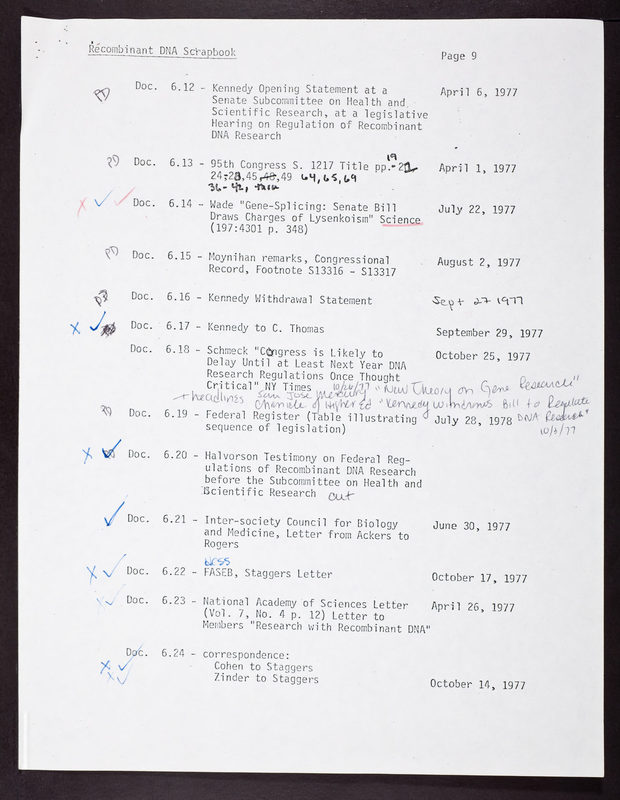 Recombinant DNA Scrapbook
Page 9
PD Doc. 6.12 - Kennedy Opening Statement at a April 6, 1977
Senate Subcommittee on Health and
Scientific Research, at a legislative
Hearing on Regulation of Recombinant
DNA Research
PD Doc. 6.13 - 95th Congress S. 1217 Title pp. 19 - 21 April 1, 1977
24-28,45,48,49 64,65,69
36-42,
X ✓ ✓ Doc. 6.14 - Wade "Gene-Splicing: Senate Bill July 22, 1977
Draws Charges of Lysenkoism" Science
(197:4301 p. 348)
PD Doc. 6.15 - Moynihan remarks, Congressional August 2, 1977
Record, Footnote S13316 - S13317
PD Doc. 6.16 - Kennedy Withdrawal Statement Sept 27 1977
X ✓ Doc. 6.17 - Kennedy to C. Thomas September 29, 1977
Doc. 6.18 - Schmeck "Congress is Likely to October 25, 1977
Delay Until at Least Next Year DNA
Research Regulations Once Thought
Critical" NY Times
+ headlines San Jose Mercury 10/26/77 "New Theory on Gene Research"
Chronicle of Higher Ed "Kennedy withdraws Bill to Regulate
DNA Research"
10/3/77
PD Doc. 6.19 - Federal Register (Table illustrating July 28, 1978
sequence of legislation)
X ✓ Doc. 6.20 - Halvorson Testimony on Federal Reg-
ulations of Recombinant DNA Research
before the Subcommittee on Health and
Scientific Research cut
✓ Doc. 6.21 - Inter-society Council for Biology June 30, 1977
and Medicine, Letter from Ackers to
Rogers
Ness
X ✓ Doc. 6.22 - FASEB, Staggers Letter October 17, 1977
✓ Doc. 6.23 - National Academy of Sciences Letter April 26, 1977
(Vol. 7, No. 4 p. 12) Letter to
Members "Research with Recombinant DNA"
Doc. 6.24 - correspondence:
X ✓ Cohen to Staggers
X ✓ Zinder to Staggers October 14, 1977